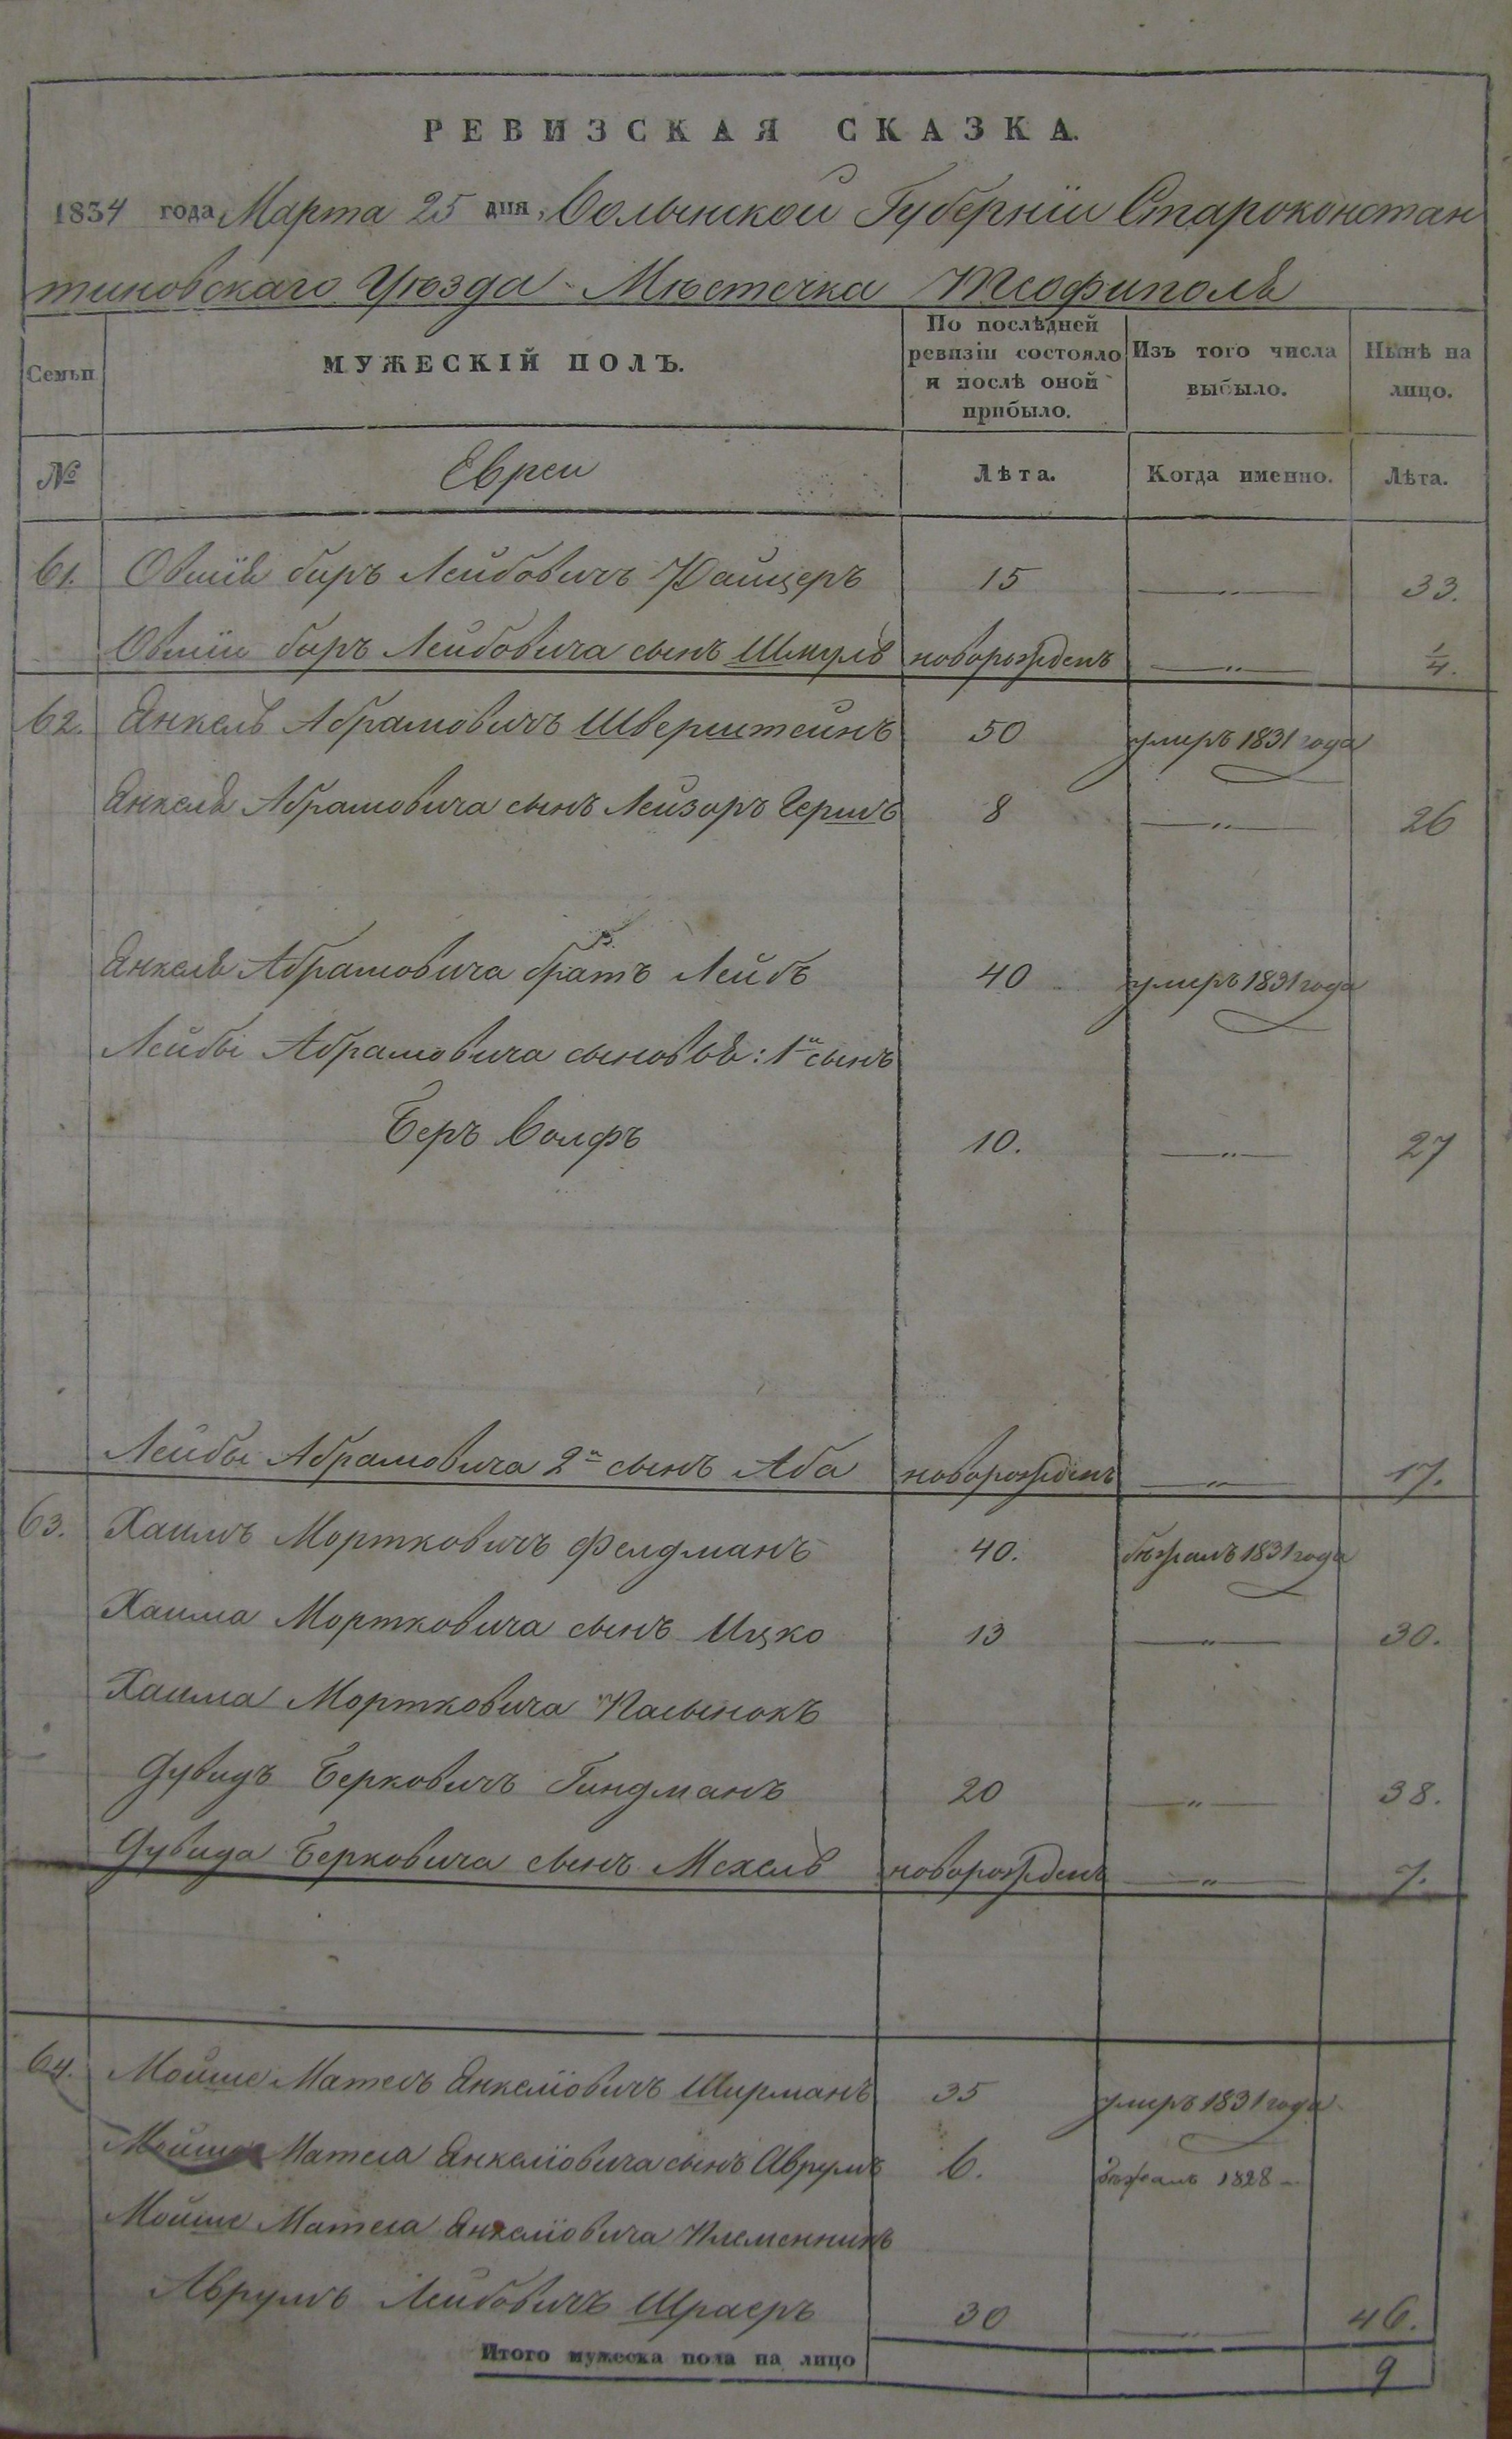 РЕВИЗСКАЯ СКАЗКА.
1834 года Марта 25 дня, Волынской Губерніи Староконстан
тиновскаго Уѣзда Мѣстечка Теофиполя
Семьи
МУЖЕСКІЙ ПОЛЪ.
По послѣдней ревизіи состояло и послѣ оной прибыло.
Изъ того числа выбыло.
Нынѣ на лицо.
№
Евреи
Лѣта.
Когда именно.
Лѣта.
61. Овшія биръ Лейбовичъ 15 —„— 33.
Овшіи биръ Лейбовича сынъ Шмуль новорожденъ —„— 1/4.
62. Янкель Абрамовичъ Шверштейнъ 50 умеръ 1831 года
Янкеля Абрамовича сынъ Лейзоръ Гершъ 8 —„— 26
Янкеля Абрамовича братъ Лейбъ 40 умеръ 1831 года
Лейбы Абрамовича сыновья: 1й сынъ
Беръ Волфъ 10. —„— 27
Лейбы Абрамовича 2й сынъ Аба новорожденъ —„— 17.
63. Хаимъ Мортковичъ Фелдманъ 40. бѣжалъ 1831 года
Хаима Мортковича сынъ Ицко 13 —„— 30.
Хаима Мортковича Пасынокъ
Дувидъ Берковичъ Гиндманъ 20 —„— 38.
Дувида Берковича сынъ Мехель новорожденъ —„— 7.
64. Мойше Матесъ Янкеліовичъ Ширманъ 35 умеръ 1831 года
Мойше Матеса Янкеліовича сынъ Аврумъ 6. бѣжалъ 1828 –
Мойше Матеса Янкеліовича Племенникъ
Аврумъ Лейбовичъ Шраеръ 30 —„— 46.
Итого мужеска пола на лицо 9